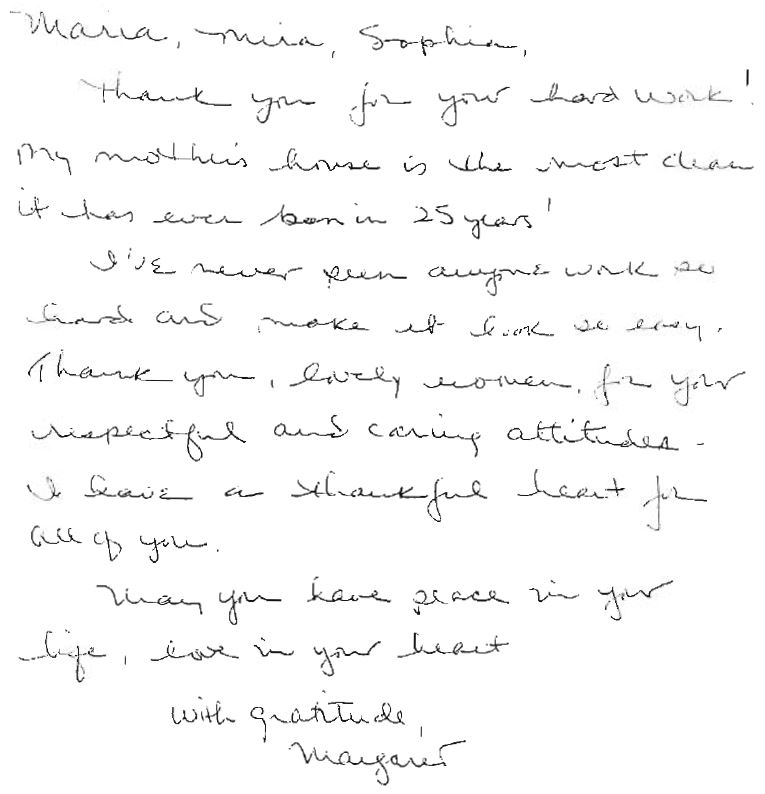 Maria, Mira, Sophia,
Thank you for your hard work!
My mother's house is the most clean
it has ever been in 25 years!
I've never seen anyone work so
hard and make it look so easy.
Thank you, lovely women, for your
respectful and caring attitudes -
I have a thankful heart for
all of you.
May you have peace in your
life, love in your heart
with gratitude,
Margaret